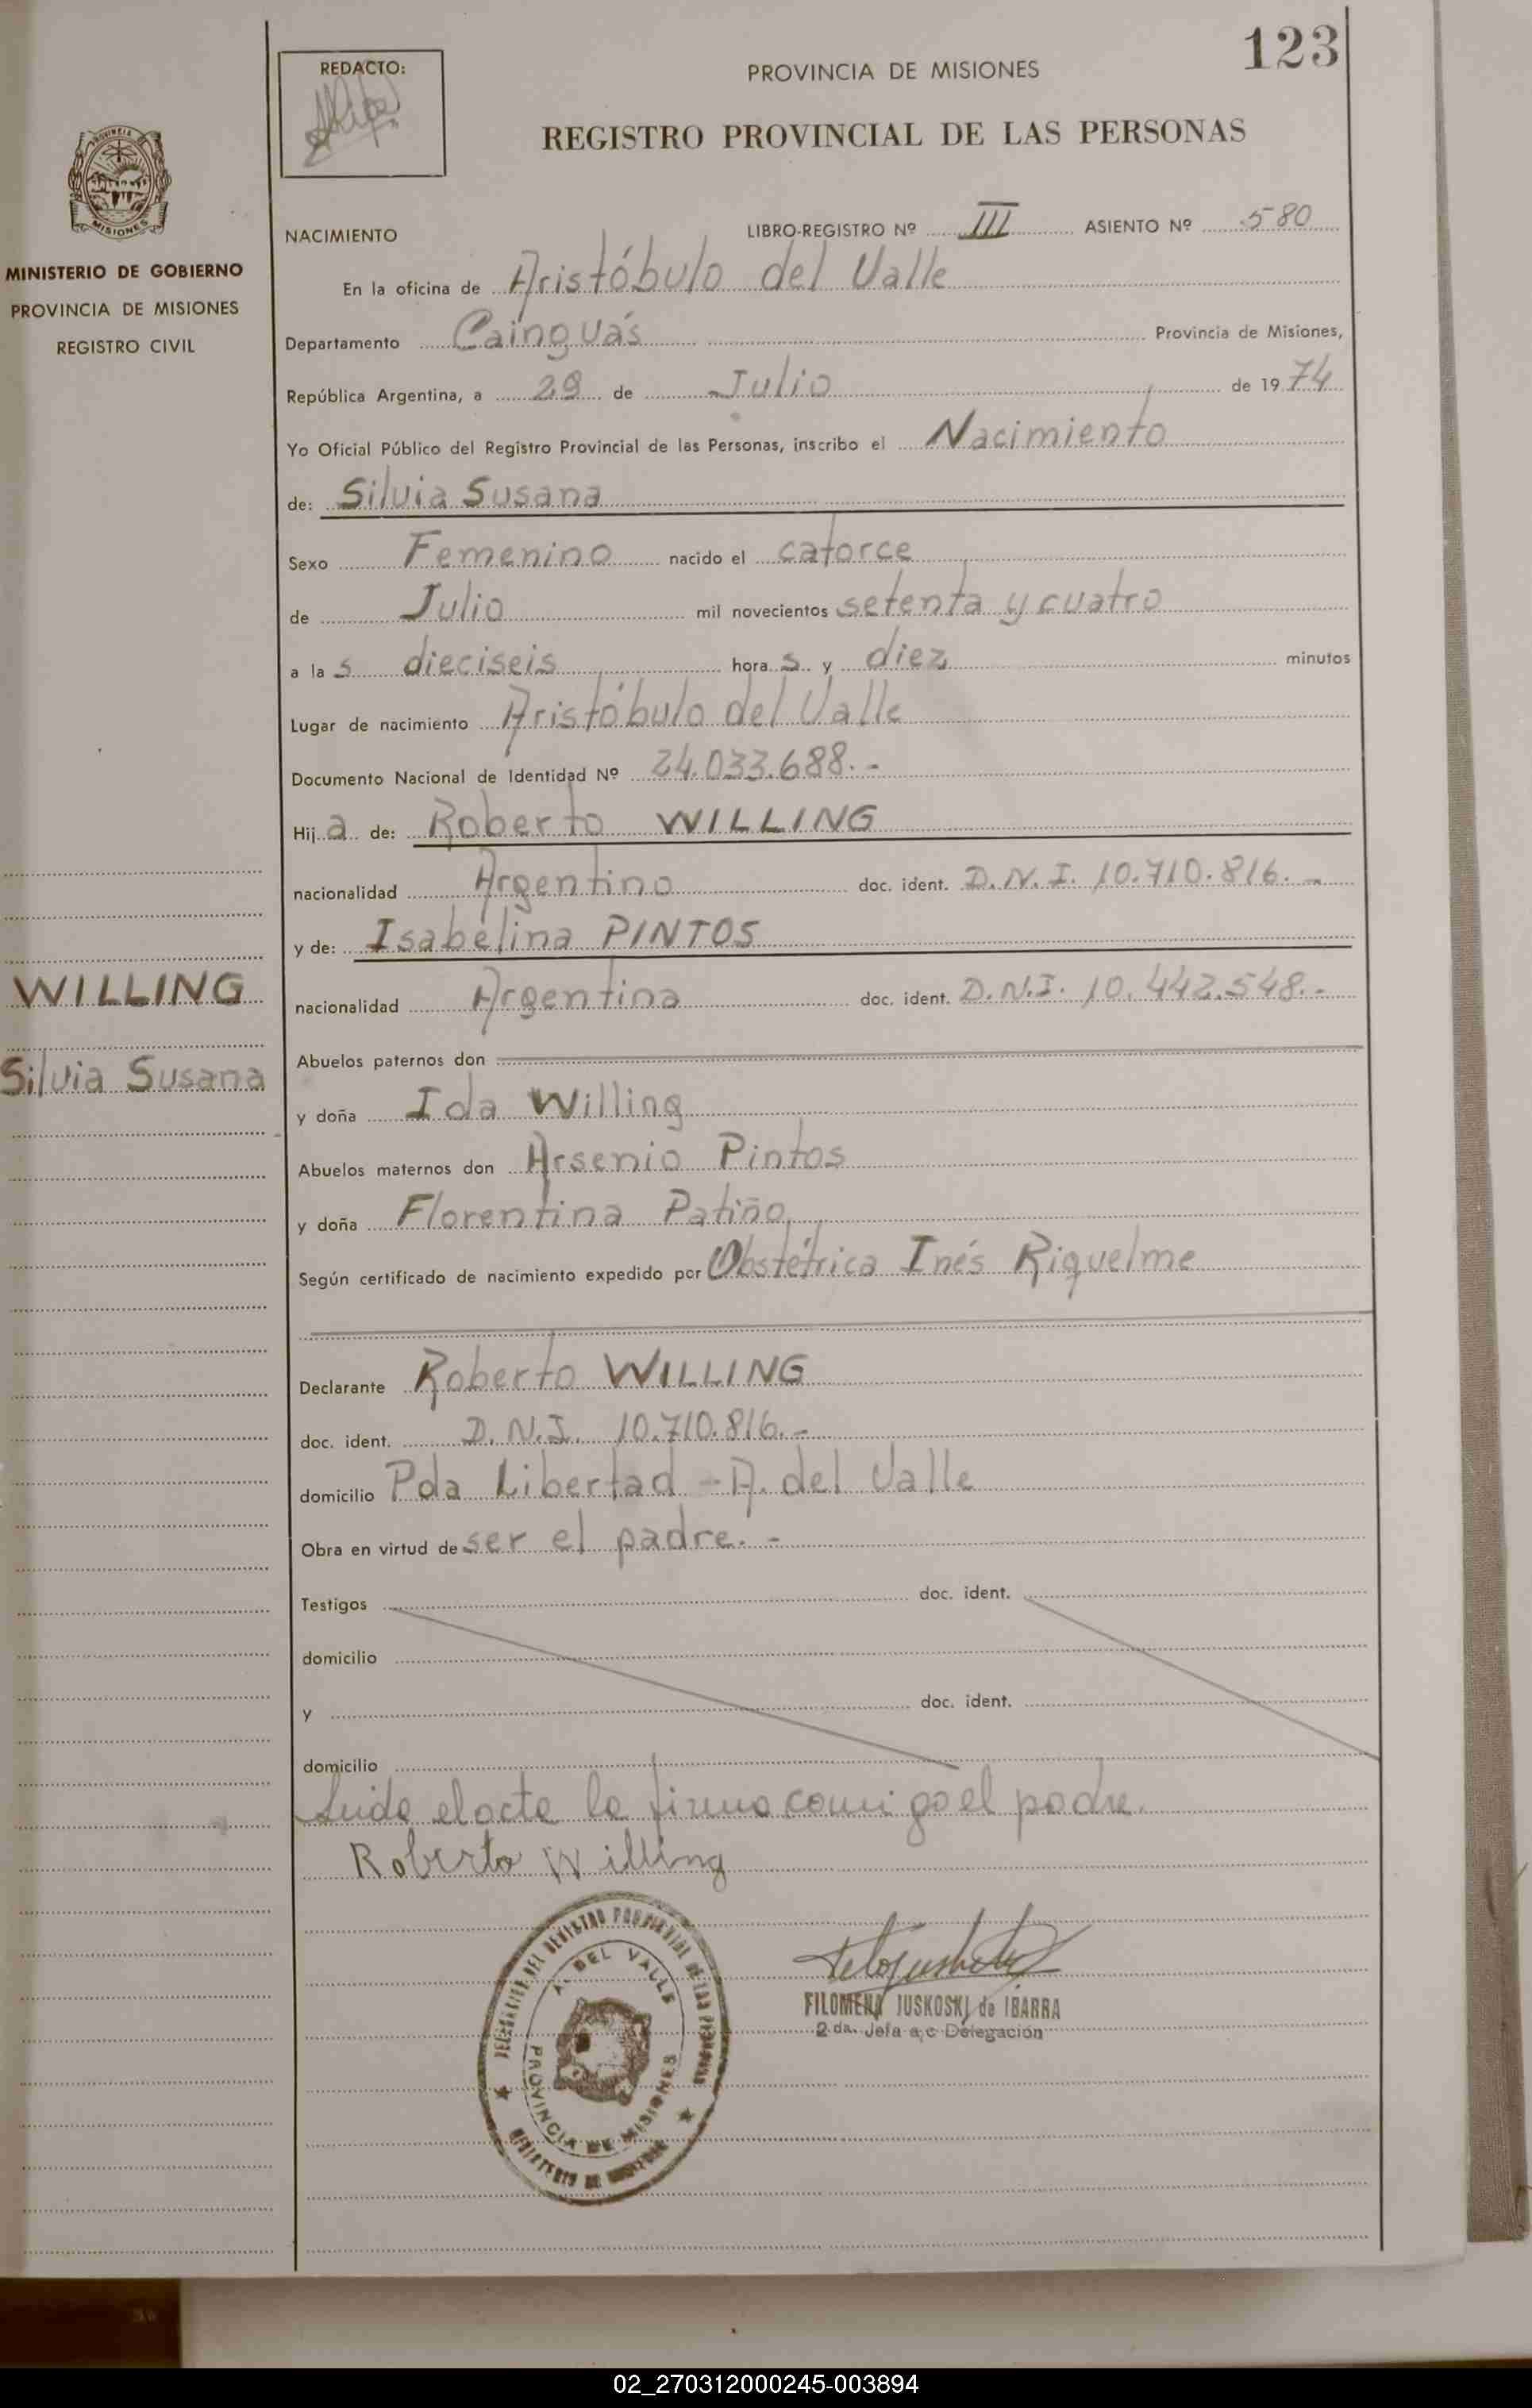 123
REDACTO:
PROVINCIA DE MISIONES
REGISTRO PROVINCIAL DE LAS PERSONAS
PROVINCIA
MISIONES
MINISTERIO DE GOBIERNO
PROVINCIA DE MISIONES
REGISTRO CIVIL
WILLING
Silvia Susana
NACIMIENTO LIBRO-REGISTRO Nº III ASIENTO Nº 580
En la oficina de Aristóbulo del Valle
Departamento Cainguás Provincia de Misiones,
República Argentina, a 29 de Julio de 1974
Yo Oficial Público del Registro Provincial de las Personas, inscribo el Nacimiento
de: Silvia Susana
Sexo Femenino nacido el catorce
de Julio mil novecientos setenta y cuatro
a la s dieciseis hora s y diez minutos
Lugar de nacimiento Aristóbulo del Valle
Documento Nacional de Identidad Nº 24.033.688.-
Hij a de: Roberto WILLING
nacionalidad Argentino doc. ident. D.N.I. 10.710.816.-
y de: Isabelina PINTOS
nacionalidad Argentina doc. ident. D.N.I. 10.442.548.-
Abuelos paternos don
y doña Ida Willing
Abuelos maternos don Arsenio Pintos
y doña Florentina Patiño
Según certificado de nacimiento expedido por Obstétrica Inés Riquelme
Declarante Roberto WILLING
doc. ident. D.N.I. 10.710.816.-
domicilio Pda Libertad - A. del Valle
Obra en virtud de ser el padre.-
Testigos doc. ident.
domicilio
y doc. ident.
domicilio
Leida el acta la firma conmigo el padre.
Roberto Willing
A. DEL VALLE
PROVINCIA DE MISIONES
FILOMENA JUSKOSKI de IBARRA
2 da. Jefa a/c Delegación
02_270312000245-003894